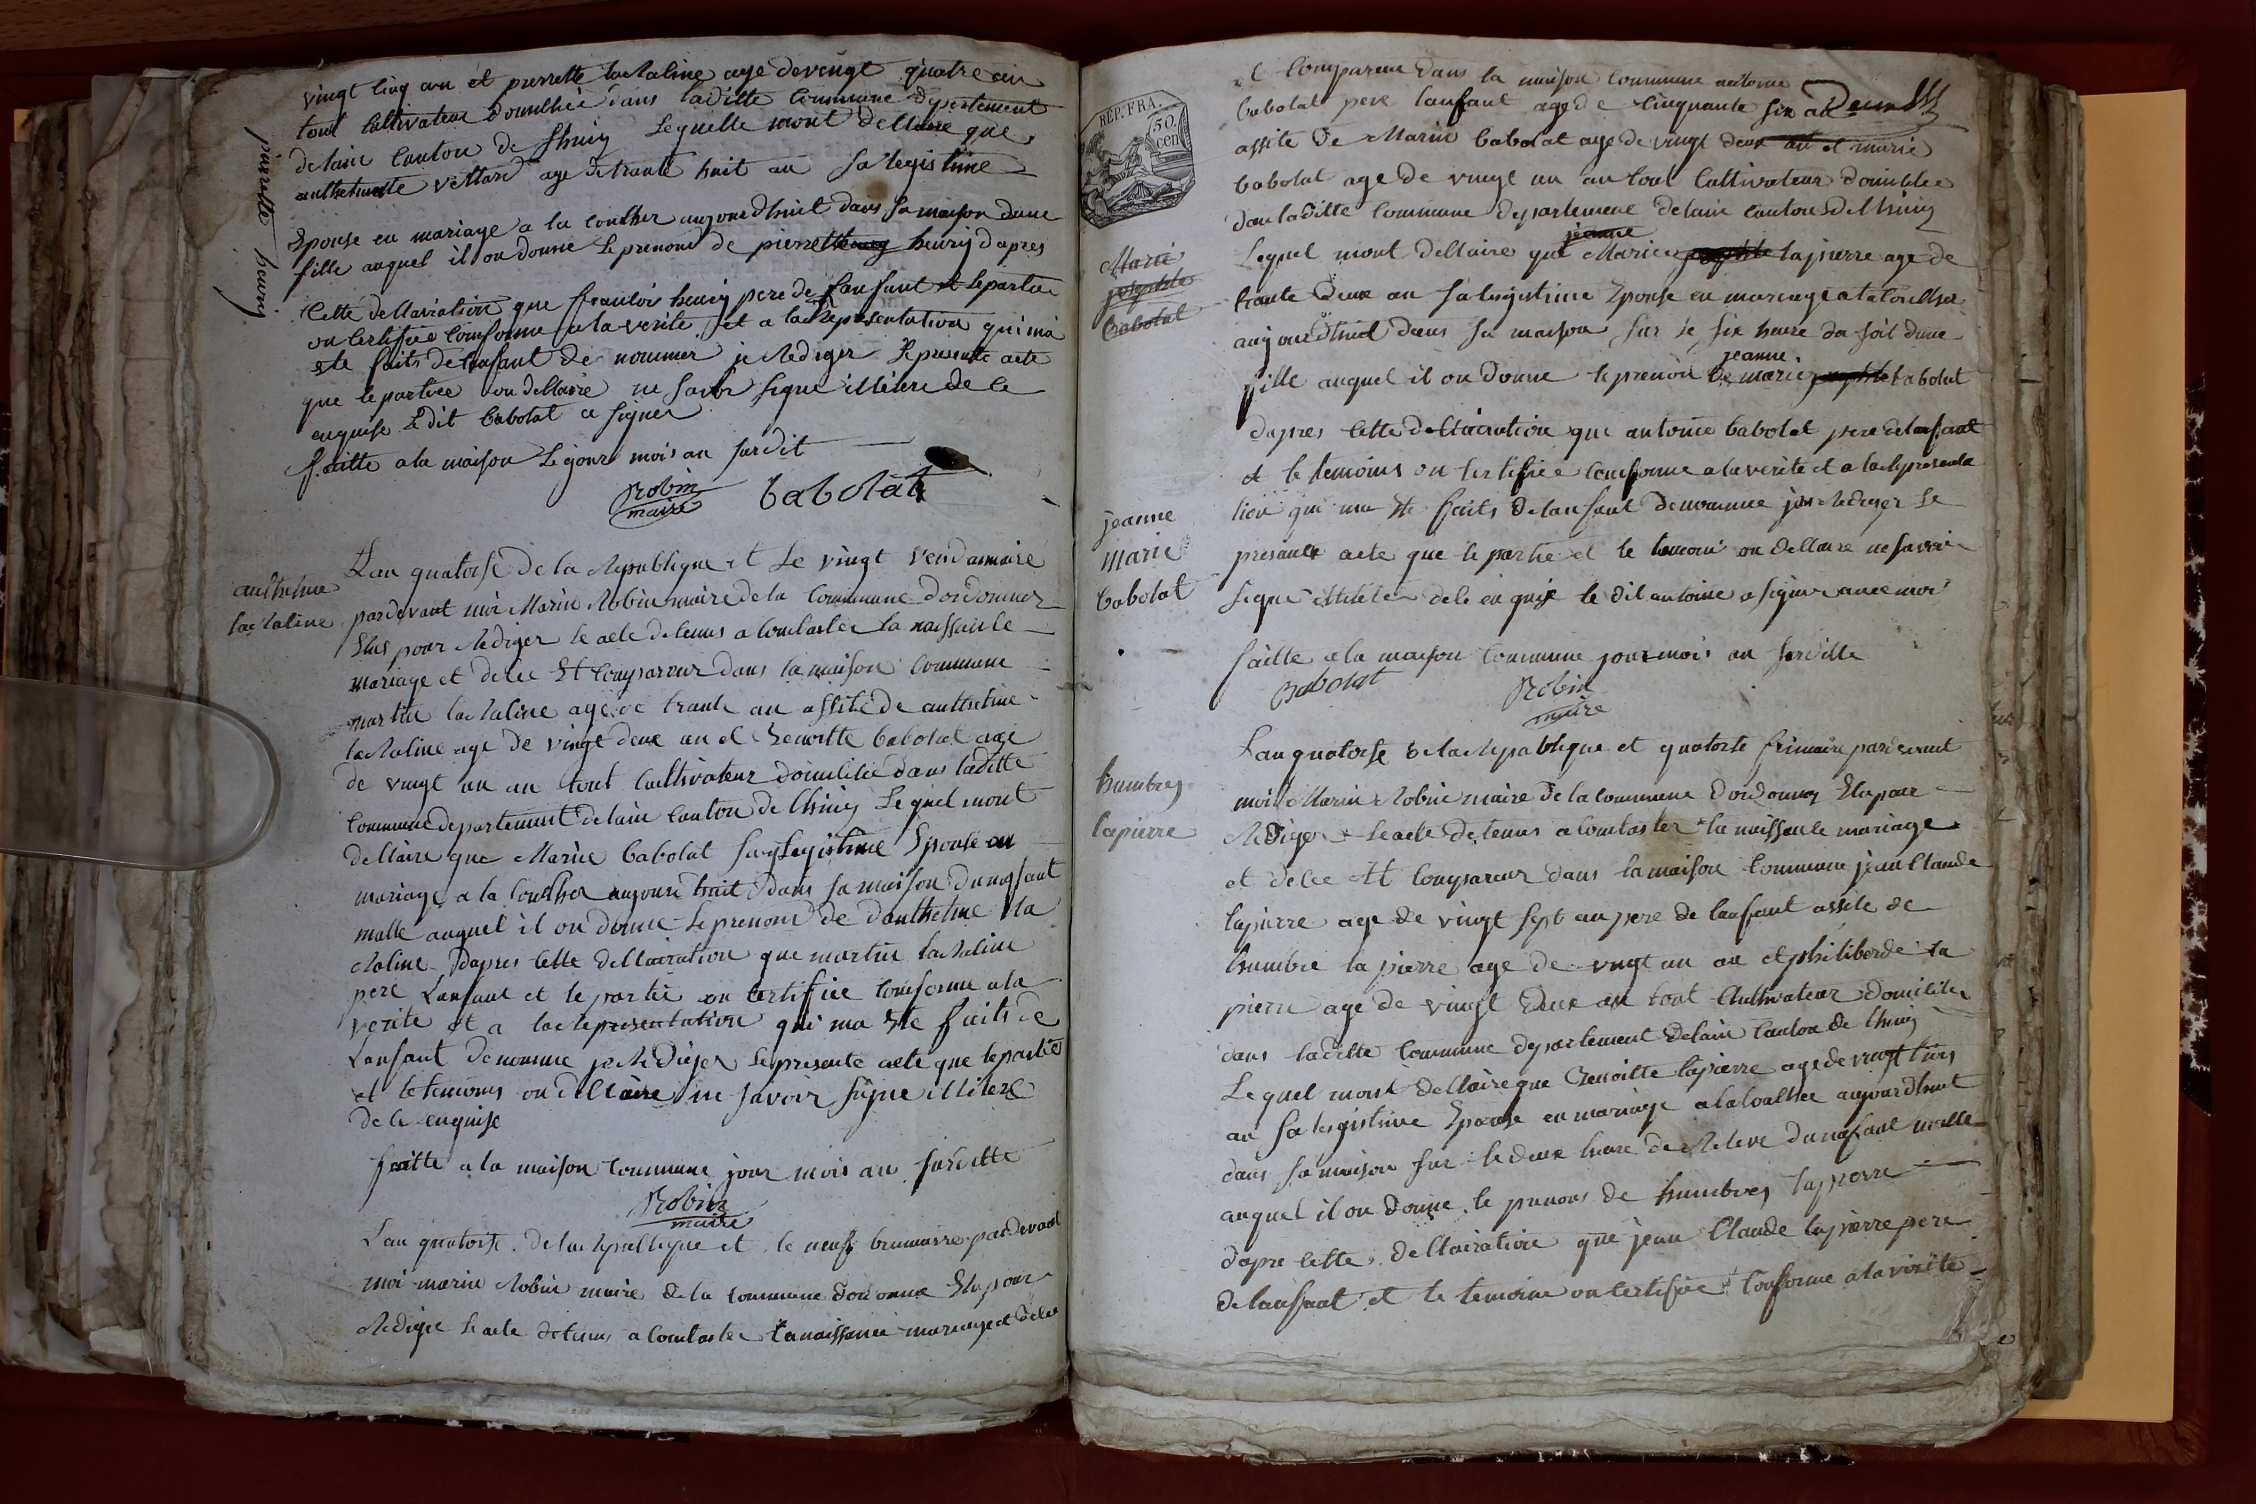 vingt cinq an et pierrette laRaline age de vingt quatre an
tout cultivateur domilhié dans laditte Commune departement
delain Canton de lhuis Lequelle mont dellaire que
anthelmette vettard age de trante huit an sa legistime
Epouse en mariage a la Couchez aujourdhuit dans sa maison dune
fille auquel il on donné le prenom de pierrette henrÿ dapres
Cette dellairation que francois henrÿ pere de lanfant et le partie
on Certifiée Comforme a la verité et a la Representation qui ma
ete faits de lanfant de nommer je Rediger le presente acte
que le partiee on dellaire ne savoir signe illitere de ce
enquise Ledit babolat a signer
faitte a la maison Le jour mois an surdit
Robin
maire
babolat
pierrette henrÿ
anthelme
laRaline
Lan quatorse de la Republique et le vingt vendamiaire
pardevant moi Marin Robin maire de la Commune dordonnaz
Elus pour Rediger le acte detenus a Contaster la naissance
mariage et dece Et Comparreur dans la maison Commune
martin laRaline age de trante an assité de anthelme
laRaline age de vingt deux an et Benoitte babolat age
de vingt un an tout Cultivateur domilitie dans laditte
Commune departement delain Canton de lhuis Lequel mont
dellaire que Marie babolat sa Legistime Epouse en
mariage a la Couchez aujourdhuit dans sa maison dunafant
malle auquel il on donne le prenom de danthelme la
Raline dapres Cette dellairation que martin laRaline
pere Lanfant et le partie on Certifiée Comforme a la
verité et a la Representation qui ma Ete faits de
Lanfant denomme je Rediger le presente acte que le partie
et le temoins on dellaire ne savoir signe illitere
de ce enquise
faitte a la maison Commune jour mois an surditte
Robin
maire
Lan quatorse de la Republique et le neuf brumaire pardevant
moi marin Robin maire de la Commune dordonnaz Elu pour
Rediger le acte detenus a Contaster la naissance mariage et dece
REP. FRA.
50
cen
et Compareur dans la maison Commune antoine
babolat pere lanfant age de Cinquante six an
assité de Marin babolat age de vingt deux an et marie
babolat age de vingt un an tout Cultivateur domilhee
dans laditte Commune departement delain Canton de lhuis
jeanne
Lequel mont dellaire que Marie josephte lapierre age de
trante deux an sa legistime Epouse en mariage a la Couchez
aujourdhuit dans sa maison sur le six heure du soit dune
jeanne
fille auquel il on donne le prenom de marie josephte babolat
dapres Cette dellairation que antoine babolat pere de lanfant
et le temoins on Certifiée Comforme a la verite et a la Representa
tion qui ma Ete faits de lanfant denomme je Rediger le
presante acte que le partie et le temoin on dellaire ne savoir
signe illitere de ce enquise le dit antoine a signer avec moi
faitte a la maison Commune jour mois an surditte
Babolat
Robin
maire
Marie
josephte
babolat
jeanne
marie
babolat
humbrey
lapierre
Lan quatorse de la Republique et quatorte frimaire pardevant
moi Marin Robin maire de la commune dordonnaz Elu pour
Rediger le acte detenus a Contaster la naissance mariage
et dece Et Compareur dans la maison Commune jean Claude
lapierre age de vingt sept an pere de lanfant assite de
humbre la pierre age de vingt un an et philiberde la
pierre age de vingt deux an tout Cultivateur domilitee
dans laditte Commune departement delain Canton de lhuis
Lequel mont dellaire que Benoitte lapierre age de vingt Cinq
an sa legistime Epouse en mariage a la Couchee aujourdhuit
dans sa maison sur le deux heure de Releve dunafant malle
auquel il on donne le prenom de humbrey lapierre
dapre Cette dellairation que jean Claude lapierre pere
de lanfant et le temoins on Certifiée Comforme a la verite